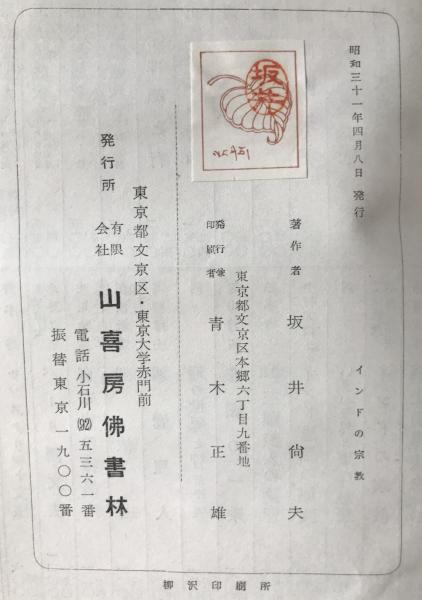 昭和三十一年四月八日 発行
インドの宗教
著作者 坂井尙夫
東京都文京区本郷六丁目九番地
発行兼印刷者 青木正雄
東京都文京区・東京大学赤門前
発行所 有限会社 山喜房佛書林
電話小石川(92)五三六一番
振替東京一九〇〇番
柳沢印刷所